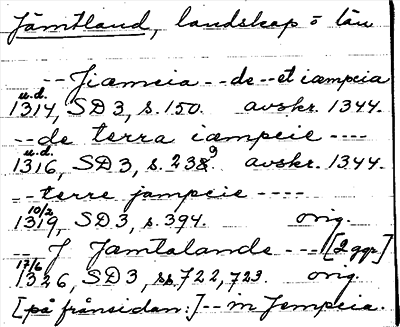 Jämtland, landskap o län
-- Jiæmcia -- de -- et iæmpcia
u.d.
1314, SD 3, s. 150. avskr. 1344.
-- de terra iæmpcie ----
u.d.
1316, SD 3, s. 239. avskr. 1344.
-- terre jampcie ----
10/2
1319, SD 3, s. 394. orig.
-- J Jamtalande --- [2 ggr]
17/6
1326, SD 3, ss. 722, 723. orig.
[på frånsidan:] -- in Jempcia.